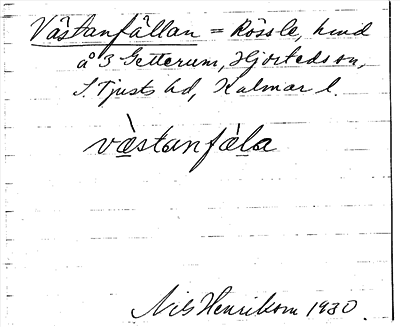 Västanfällan = Rössle, hmd
å 3 Getterum, Hjortedson,
S. Tjusts hd, Kalmar l.
västanfäla
Nils Henrikson 1930.